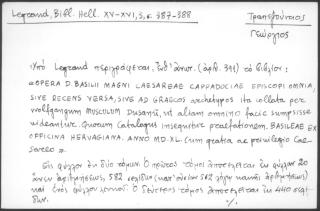 Legrand, Bibl. Hell. XV-XVI, 3, σ. 387-388
Τραπεζούντιος
Γεώργιος
Ὑπὸ Legrand περιγράφεται, ὑπ' ἀριθμ. (ἀριθ. 391) τὸ βιβλίον:
«OPERA D. BASILII MAGNI CAESAREAE CAPPADOCIAE EPISCOPI OMNIA,
SIVE RECENS VERSA, SIVE AD GRAECOS archetypos ita collata per
Wolfgangum MUSCULUM Dusanū, ut aliam omnino facie sumpsisse
videantur. Quorum Catalogus insequitur praefationem, BASILEAE EX
OFFICINA HERVAGIANA. ANNO MD.XL. Cum gratia ac privilegio Cae-
sareo»
Εἰς φύλλον ἐν δύο τόμοις. Ὁ πρῶτος τόμος ἀποτελεῖται ἐκ φύλλων 20
ἄνευ ἀριθμήσεως, 582 σελίδων
καὶ ἑνὸς φύλλου λευκοῦ. Ὁ δεύτερος τόμος ἀποτελεῖται ἐκ 440 σελί-
δων.
./.